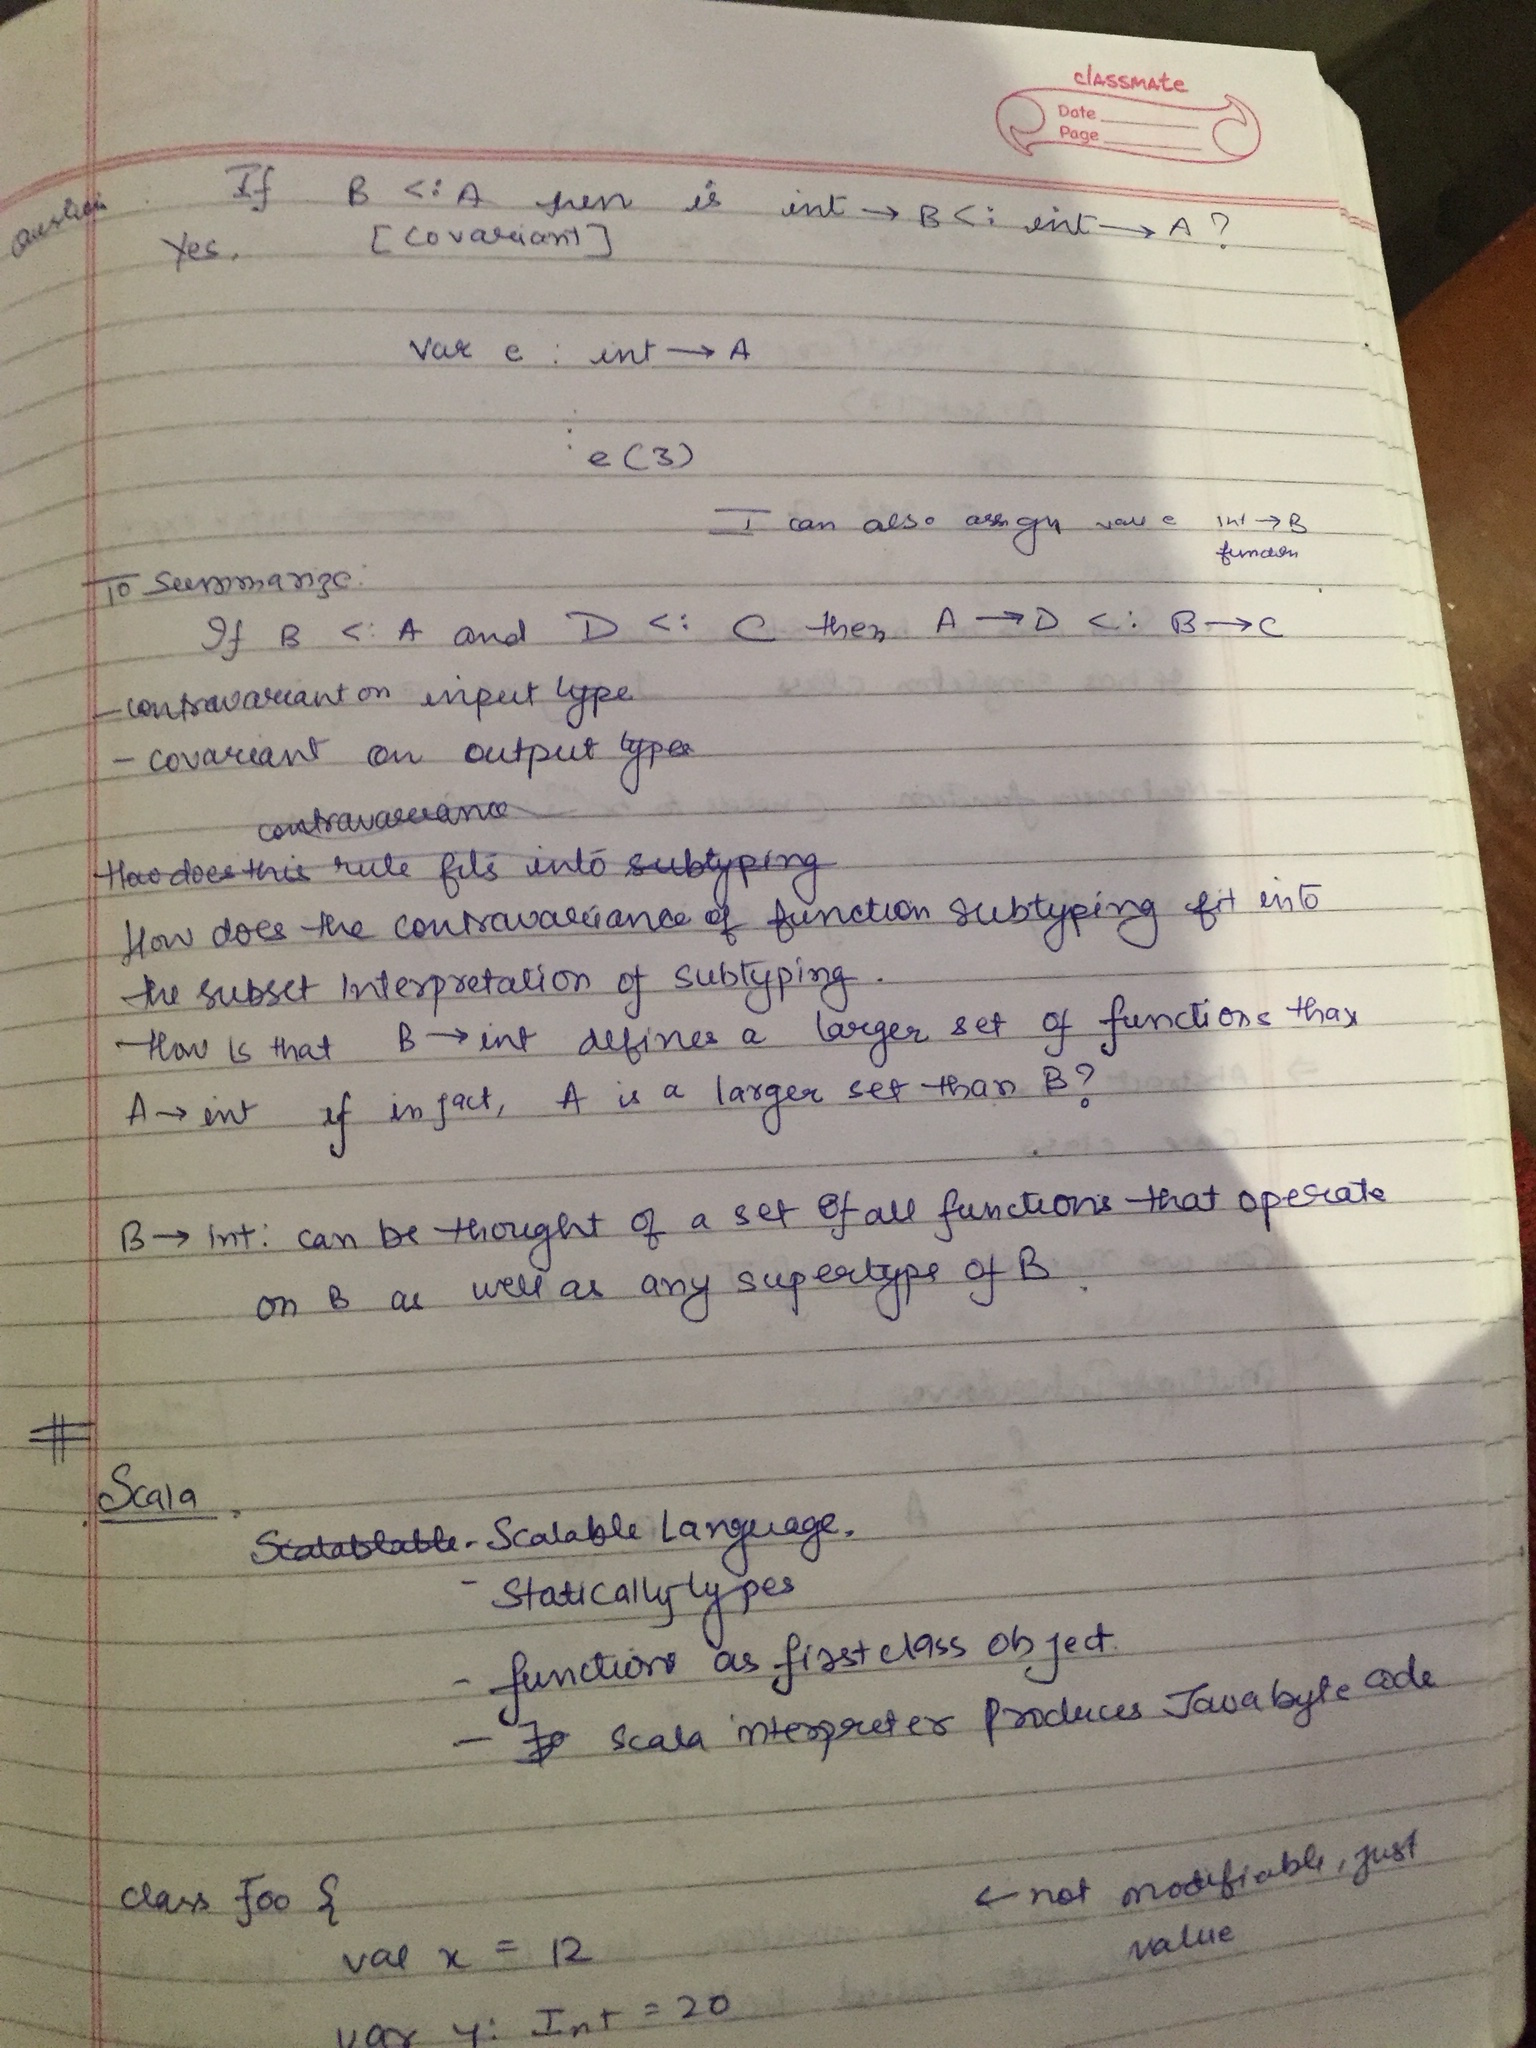 classmate
Date
Page
Question: If B <: A then is int → B <: int → A ?
Yes. [Covariant]
var e : int → A
⋮ e(3)
I can also assign var e int → B
function
To summarize:
If B <: A and D <: C then A → D <: B → C
- contravariant on input type
- covariant on output types
contravariance
How does this rule fits into subtyping
How does the contravariance of function subtyping fit into
the subset interpretation of subtyping.
- How is that B → int defines a larger set of functions than
A → int if in fact, A is a larger set than B?
B → int: can be thought of a set of all functions that operate
on B as well as any supertype of B.
#
Scala.
Scalablable - Scalable Language.
- Statically types
- functions as first class object.
- scala interpreter produces Java byte code
class Foo { ← not modifiable, just
val x = 12 value
var y: Int = 20